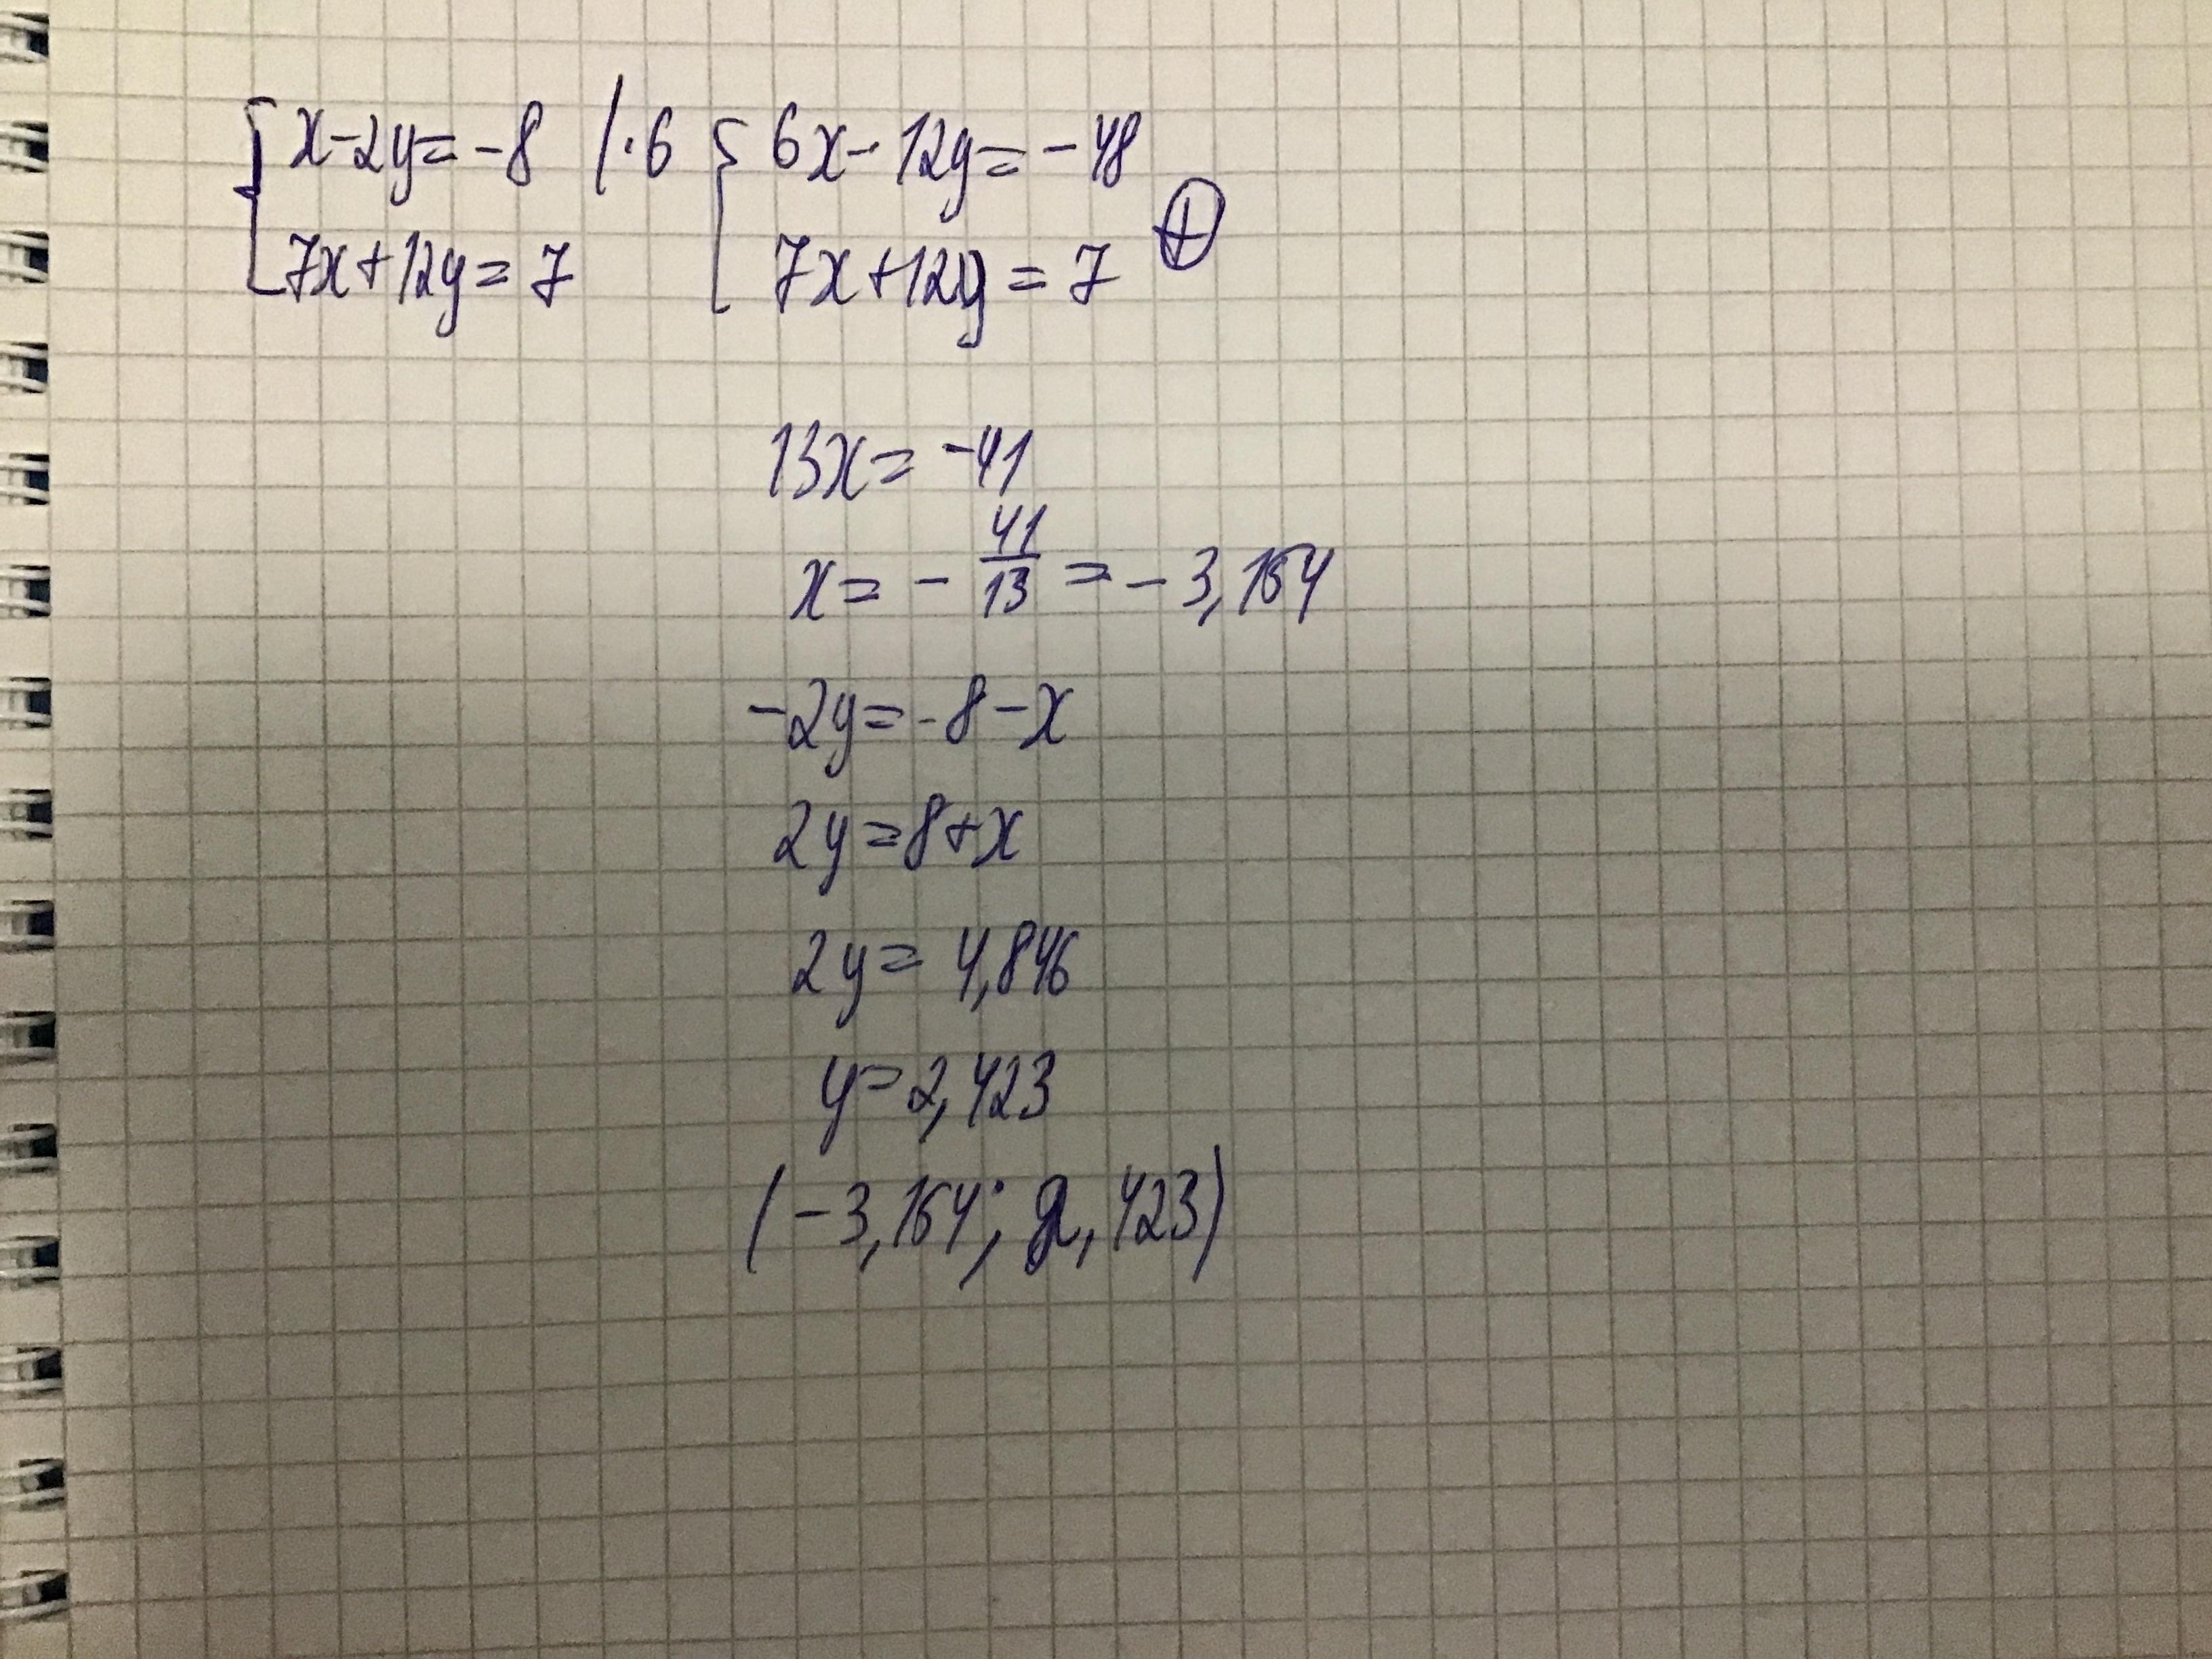 {x-2y=-8 /·6 {6x-12y=-48
7x+12y=7 7x+12y=7 ⊕
13x=-41
x=-41/13=-3,154
-2y=-8-x
2y=8+x
2y=4,846
y=2,423
(-3,154; 2,423)